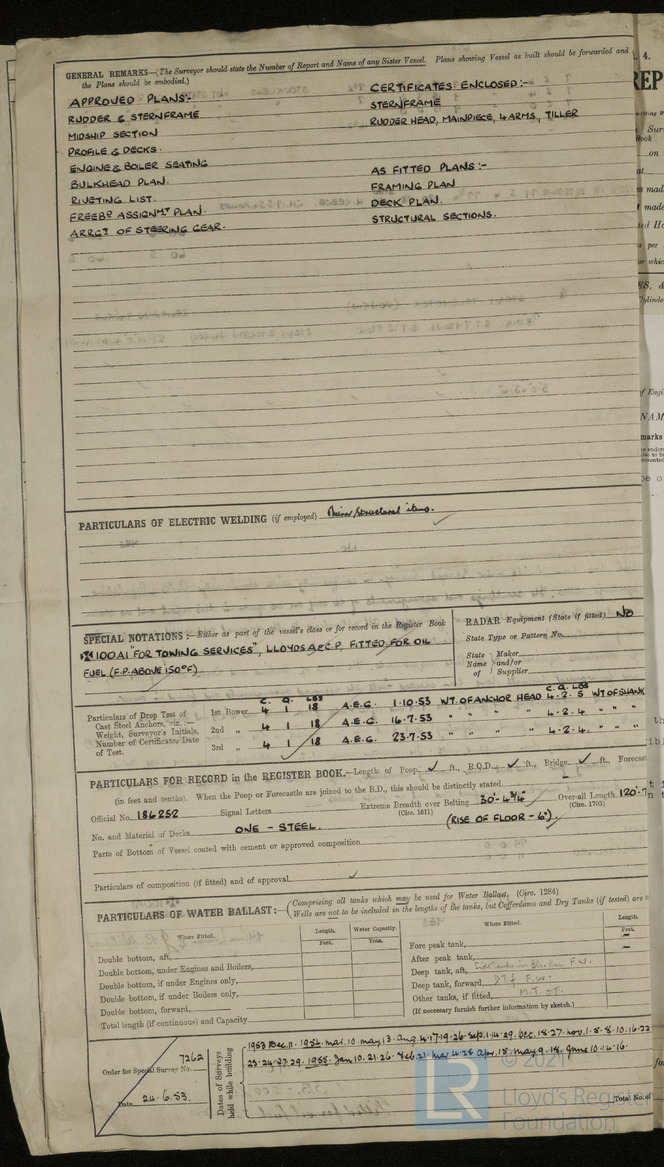 GENERAL REMARKS—(The Surveyor should state the Number of Report and Name of any Sister Vessel. Plans showing Vessel as built should be forwarded and
the Plans should be embodied.)
APPROVED PLANS:-
RUDDER & STERNFRAME
MIDSHIP SECTION
PROFILE & DECKS.
ENGINE & BOILER SEATING
BULKHEAD PLAN.
RIVETING LIST.
FREEBD ASSIGNMT PLAN.
ARRGT OF STEERING GEAR.
CERTIFICATES ENCLOSED:-
STERNFRAME
RUDDER HEAD, MAINPIECE, 4 ARMS, TILLER
AS FITTED PLANS:-
FRAMING PLAN
DECK PLAN.
STRUCTURAL SECTIONS.
PARTICULARS OF ELECTRIC WELDING (if employed) Minor structural items.
SPECIAL NOTATIONS:—Either as part of the vessel's class or for record in the Register Book
✠100A1 "FOR TOWING SERVICES", LLOYDS A & C.P. FITTED FOR OIL
FUEL (F.P. ABOVE 150°F)
RADAR Equipment (State if fitted) NO
State Type or Pattern No.
State Name of Maker and/or Supplier
Particulars of Drop Test of Cast Steel Anchors, viz.:— Weight, Surveyor's Initials, Number of Certificate, Date of Test.
C. Q. LBS C. Q. LBS
1st Bower 4 1 18 A.E.G. 1.10.53 WT. OF ANCHOR HEAD 4.2.5 WT OF SHANK
2nd „ 4 1 18 A.E.G. 16.7.53 " " " 4.2.4 " " "
3rd „ 4 1 18 A.E.G. 23.7.53 " " " 4.2.4. " " "
PARTICULARS FOR RECORD in the REGISTER BOOK.—Length of Poop ✓ ft., R.Q.D. ✓ ft., Bridge ✓ ft., Forecas
(in feet and tenths). When the Poop or Forecastle are joined to the B.D., this should be distinctly stated
Official No. 186252 Signal Letters Extreme Breadth over Belting 30'-4¾" Over-all Length 120'-7
(Circ. 1611) (Circ. 1703)
No. and Material of Decks ONE - STEEL. (RISE OF FLOOR - 6").
Parts of Bottom of Vessel coated with cement or approved composition
Particulars of composition (if fitted) and of approval ✓
PARTICULARS OF WATER BALLAST:—(Comprising all tanks which may be used for Water Ballast, (Circ. 1284)
Wells are not to be included in the lengths of the tanks, but Cofferdams and Dry Tanks (if tested) are
Where Fitted. Length. Water Capacity. Where Fitted. Length.
Feet. Tons. Feet.
Double bottom, aft,
Double bottom, under Engines and Boilers,
Double bottom, if under Engines only,
Double bottom, if under Boilers only,
Double bottom, forward,
Total length (if continuous) and Capacity
Fore peak tank,
After peak tank,
Deep tank, aft, F.W.
Deep tank, forward, F.W.
Other tanks, if fitted,
(If necessary furnish further information by sketch.)
Order for Special Survey No. 7262
Date 24.6.53.
Dates of Surveys held while building
1953 Dec. 11 - 1954 mar. 10. may. 13. aug. 4.17.19.26. Sep. 1.14.29. Oct. 18.27. nov. 1.5.8.10.16.22
23.24.27.29. 1955 Jan 10.21.26. Feb. 21. mar. 4.28 apr. 15. may 9.18. June 10.14.16.
Total No. of
© 2021
LR
Lloyd's Register
Foundation